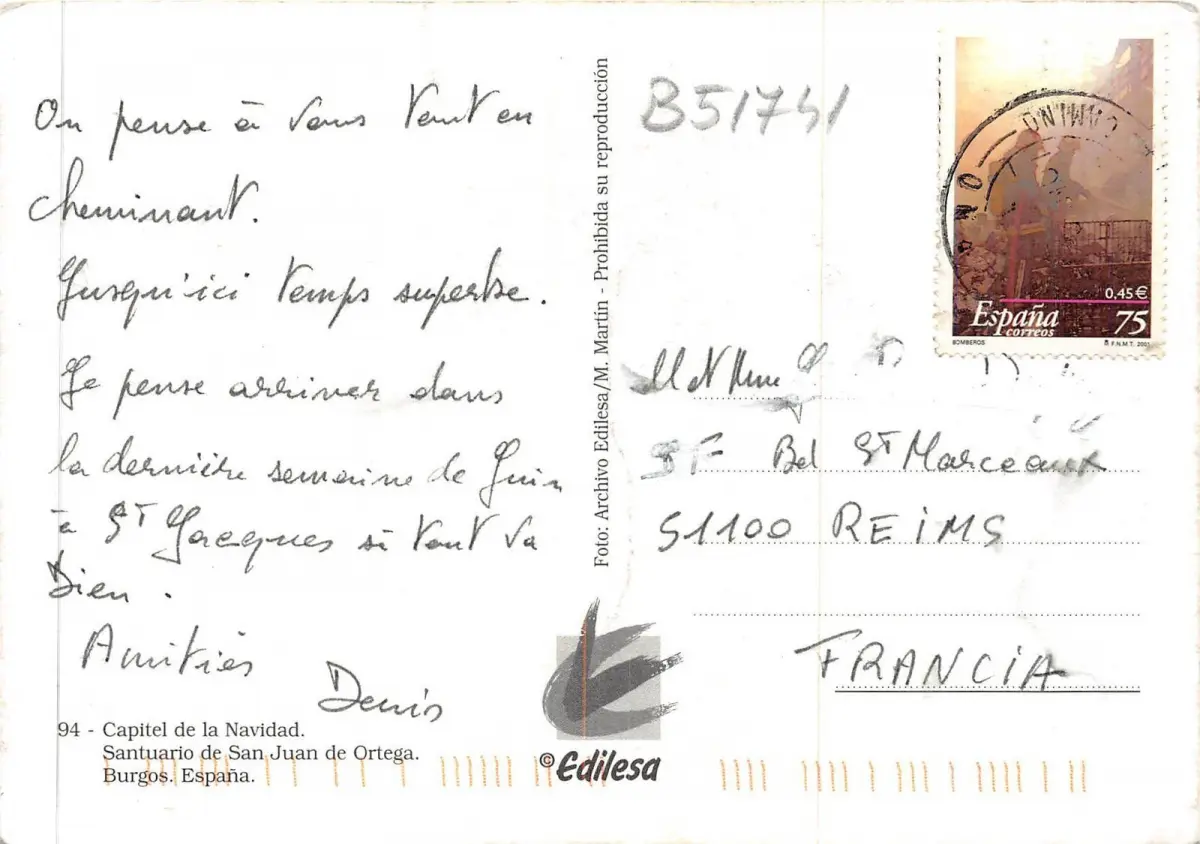 On pense à vous tout en
cheminant.
Jusqu'ici temps superbe.
Je pense arriver dans
la dernière semaine de Juin
à St Jacques si tout va
Bien.
Amitiés
Denis
94 - Capitel de la Navidad.
Santuario de San Juan de Ortega.
Burgos. España.
Foto: Archivo Edilesa/M. Martín - Prohibida su reproducción
©Edilesa
B51741
CAMINO
0,45€
España
correos
75
BOMBEROS
F.N.M.T. 2001
M et Mme
Bd St Marceaux
51100 REIMS
FRANCIA